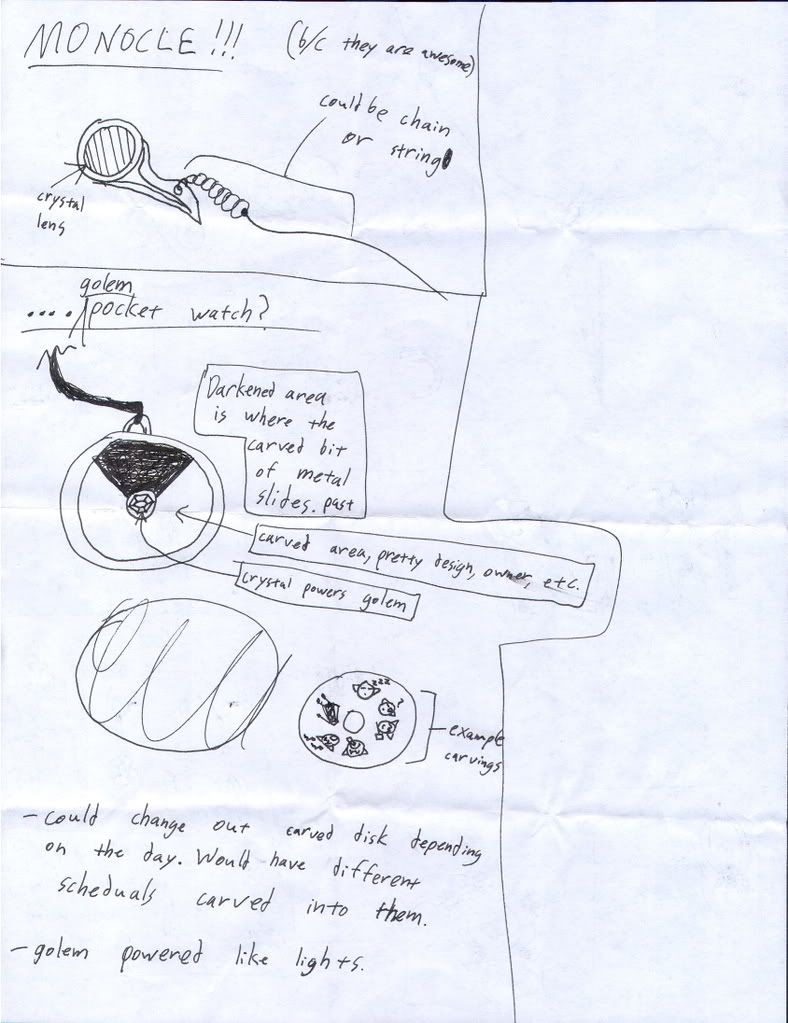 MONOCLE!!! (b/c they are awesome)
could be chain
or string
crystal
lens
golem
.... pocket watch?
Darkened area
is where the
carved bit
of metal
slides. past
carved area, pretty design, owner, etc.
crystal powers golem
zzz
?
example
carvings
- could change out carved disk depending
on the day. Would have different
scheduals carved into them.
- golem powered like lights.